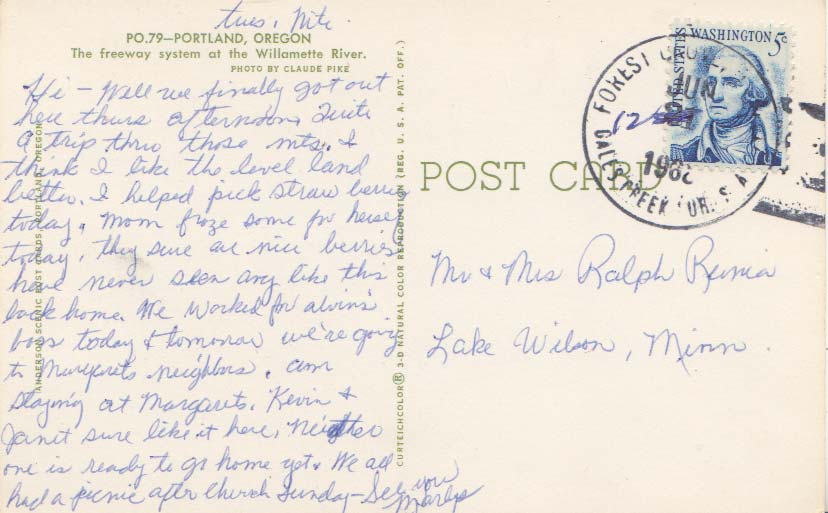 Tues. Nite.
PO.79—PORTLAND, OREGON
The freeway system at the Willamette River.
PHOTO BY CLAUDE PIKE
Hi - Well we finally got out
here thurs afternoon. Quite
a trip thru those mts. I
think I like the level land
better. I helped pick straw berries
today. Mom froze some for herself
today, they sure are nice berries
have never seen any like this
back home. We worked for alvins
boss today & tomorrow we're going
to Margarets neighbors. am
staying at Margarets. Kevin &
Janet sure like it here, neither
one is ready to go home yet. We all
had a picnic after Church Sunday - See you
Marlys
ANDERSON SCENIC POST CARDS PORTLAND, OREGON
CURTEICHCOLOR® 3-D NATURAL COLOR REPRODUCTION (REG. U. S. A. PAT. OFF.)
POST CARD
UNITED STATES
WASHINGTON 5¢
FOREST
JUN
12
GALES CREEK OR.
Mr & Mrs Ralph
Lake Wilson, Minn.